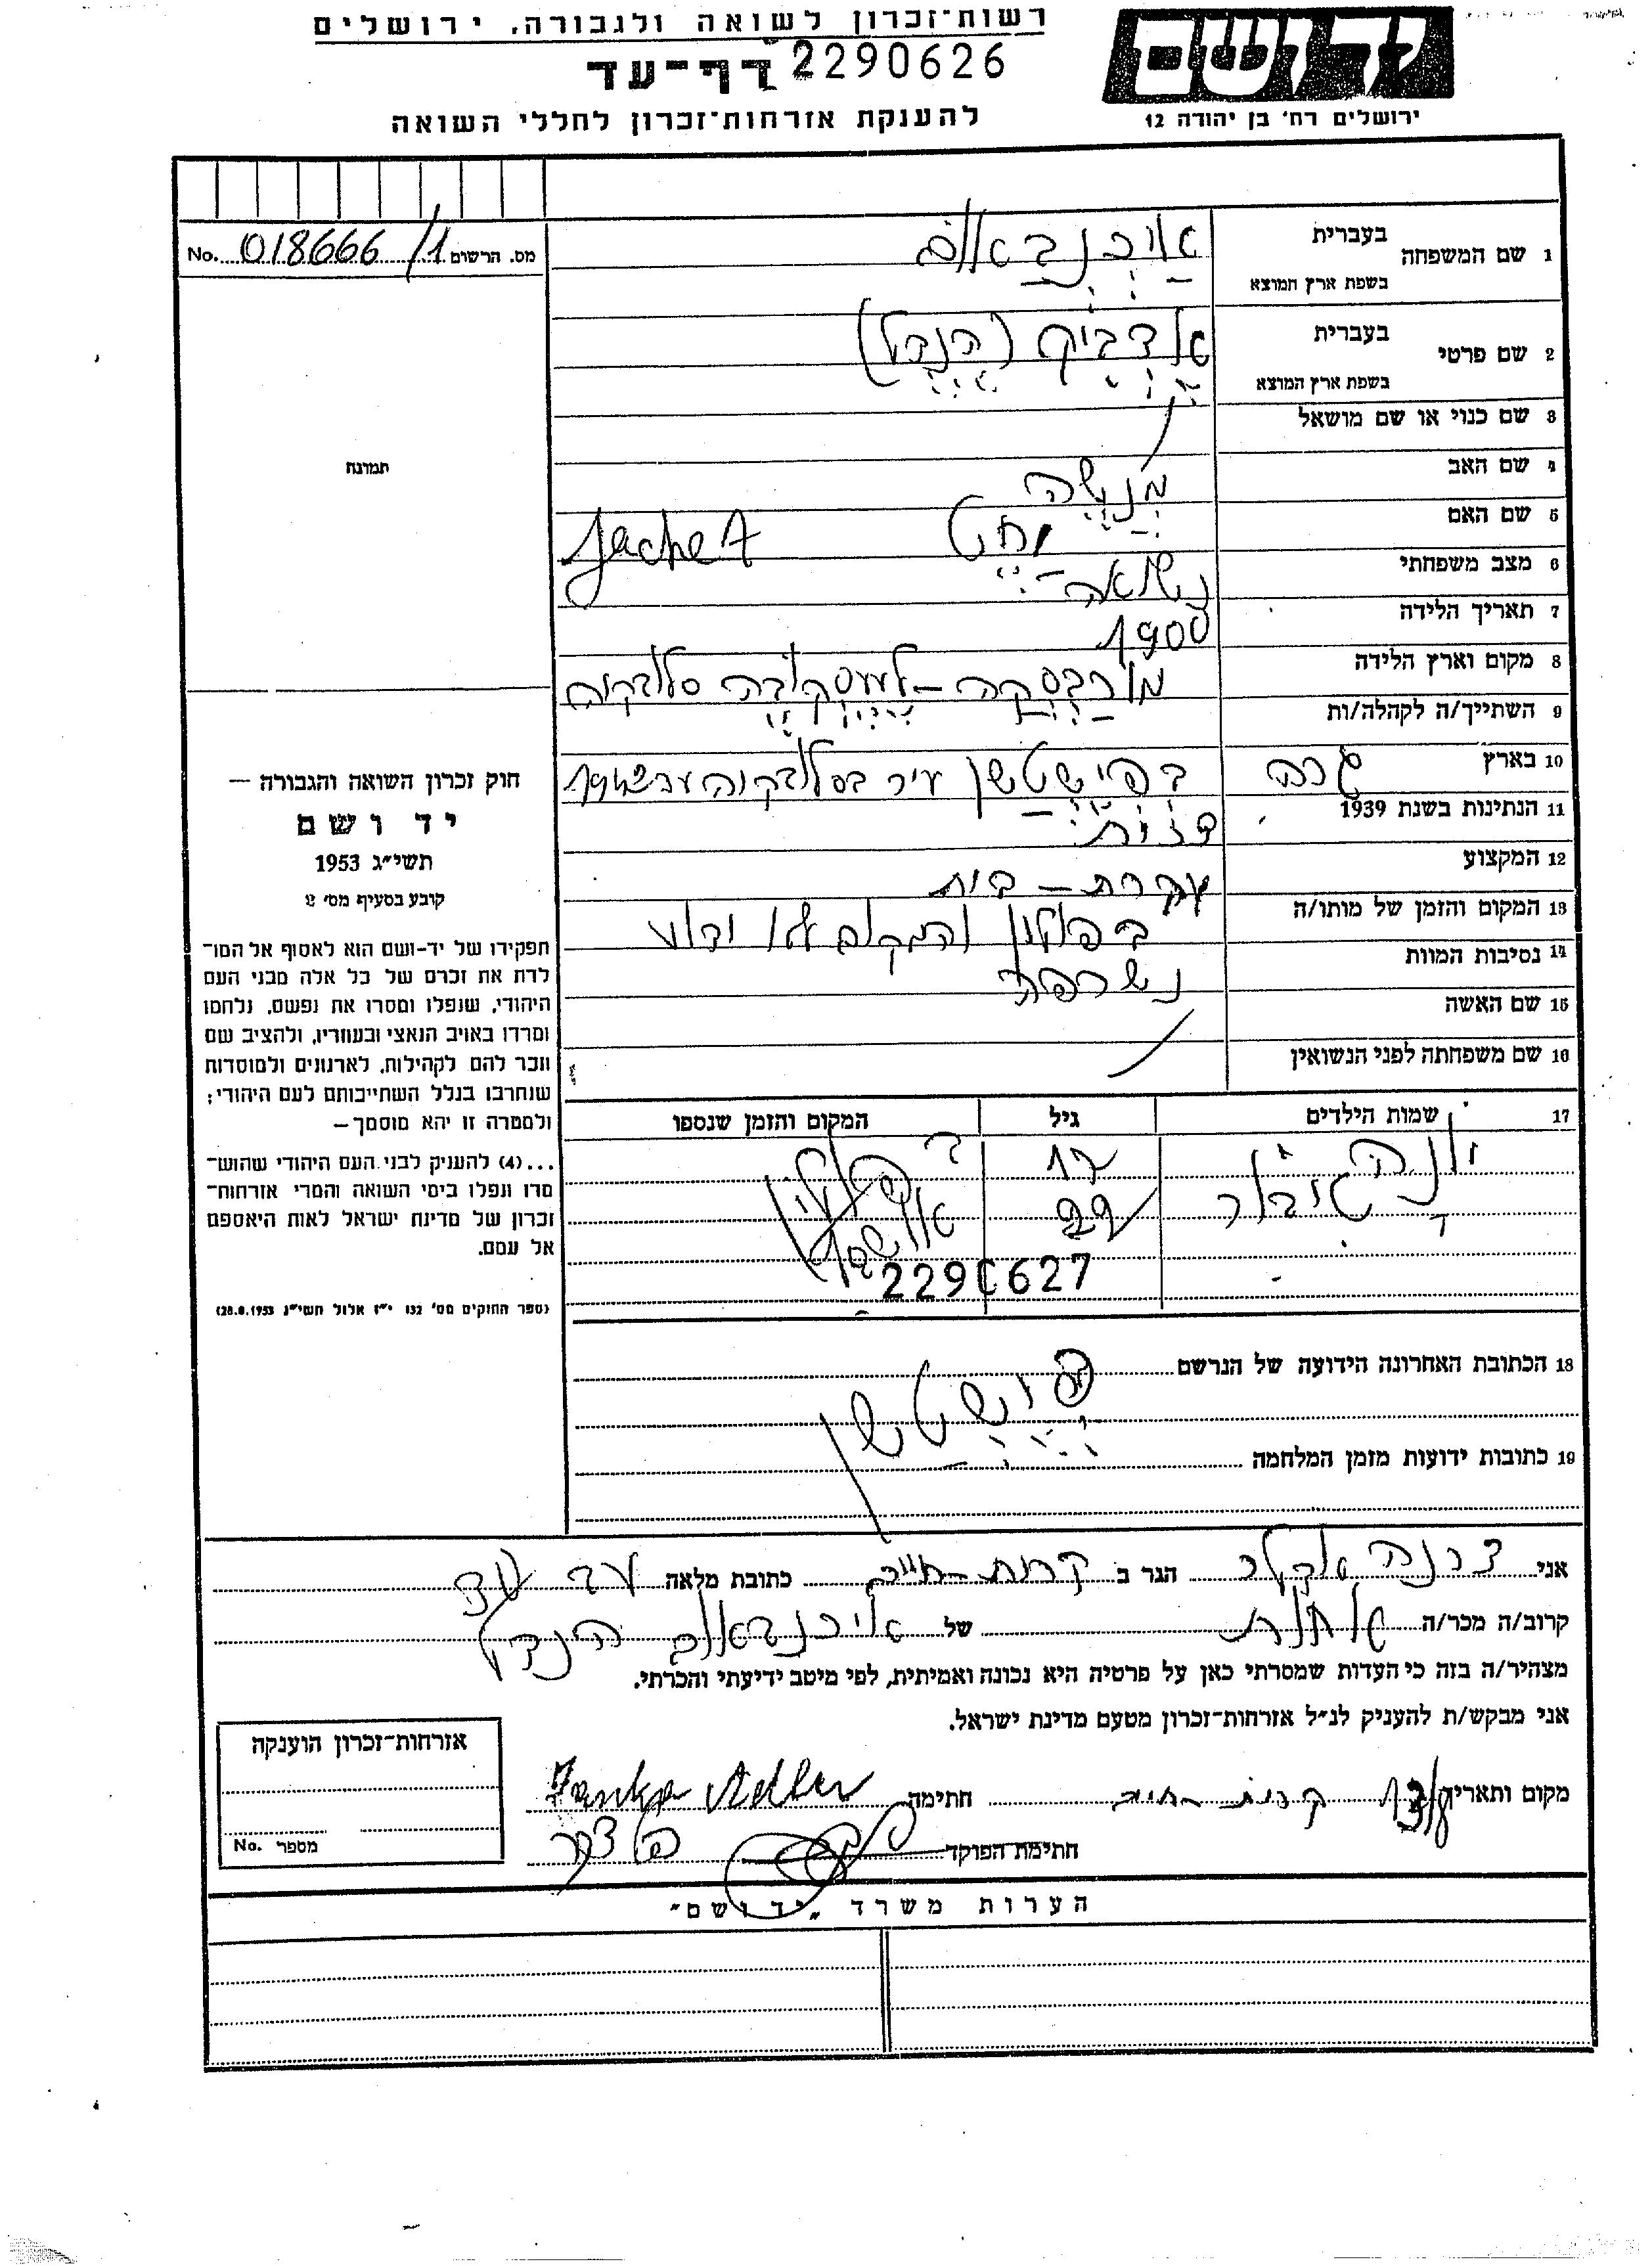 רשות־זכרון לשואה ולגבורה, ירושלים
דף־עד 2290626
להענקת אזרחות־זכרון לחללי השואה
ידושם
ירושלים רח' בן יהודה 12
מס. הרשום 018666/1 No.
1 שם המשפחה בעברית אייכנבאום
בשפת ארץ המוצא
2 שם פרטי בעברית (הנדל)
בשפת ארץ המוצא
3 שם כנוי או שם מושאל
4 שם האב מנשה
5 שם האם יחט Jachet
6 מצב משפחתי נשואה
7 תאריך הלידה 1900
8 מקום וארץ הלידה סלובקיה
9 השתייך/ה לקהלה/ות
10 בארץ גרה בפישטשן עיר בסלובקיה עד
11 הנתינות בשנת 1939
12 המקצוע עקרת-בית
13 המקום והזמן של מותו/ה בפולין והמקום לא ידוע
14 נסיבות המוות נשרפה
15 שם האשה
16 שם משפחתה לפני הנשואין
17 שמות הילדים גיל המקום והזמן שנספו
17
22
2290627
18 הכתובת האחרונה הידועה של הנרשם פישטשן
19 כתובות ידועות מזמן המלחמה
תמונה
חוק זכרון השואה והגבורה —
יד ושם
תשי״ג 1953
קובע בסעיף מס׳ 2
תפקידו של יד-ושם הוא לאסוף אל המו־
לדת את זכרם של כל אלה מבני העם
היהודי, שנפלו ומסרו את נפשם, נלחמו
ומרדו באויב הנאצי ובעוזריו, ולהציב שם
וזכר להם לקהילות, לארגונים ולמוסדות
שנחרבו בגלל השתייכותם לעם היהודי;
ולמטרה זו יהא מוסמך —
...(4) להעניק לבני העם היהודי שהוש־
מדו ונפלו בימי השואה והמרי אזרחות־
זכרון של מדינת ישראל לאות היאספם
אל עמם.
(ספר החוקים מס׳ 132 י״ז אלול תשי״ג 28.8.1953)
אני הגר ב קרית-חיים כתובת מלאה
קרוב/ה מכר/ה של אייכנבאום הנדל
מצהיר/ה בזה כי העדות שמסרתי כאן על פרטיה היא נכונה ואמיתית, לפי מיטב ידיעתי והכרתי.
אני מבקש/ת להעניק לנ״ל אזרחות־זכרון מטעם מדינת ישראל.
מקום ותאריך קרית-חיים חתימה Hanka Adler
חתימת הפוקד
אזרחות־זכרון הוענקה
מספר No.
הערות משרד „יד ושם״